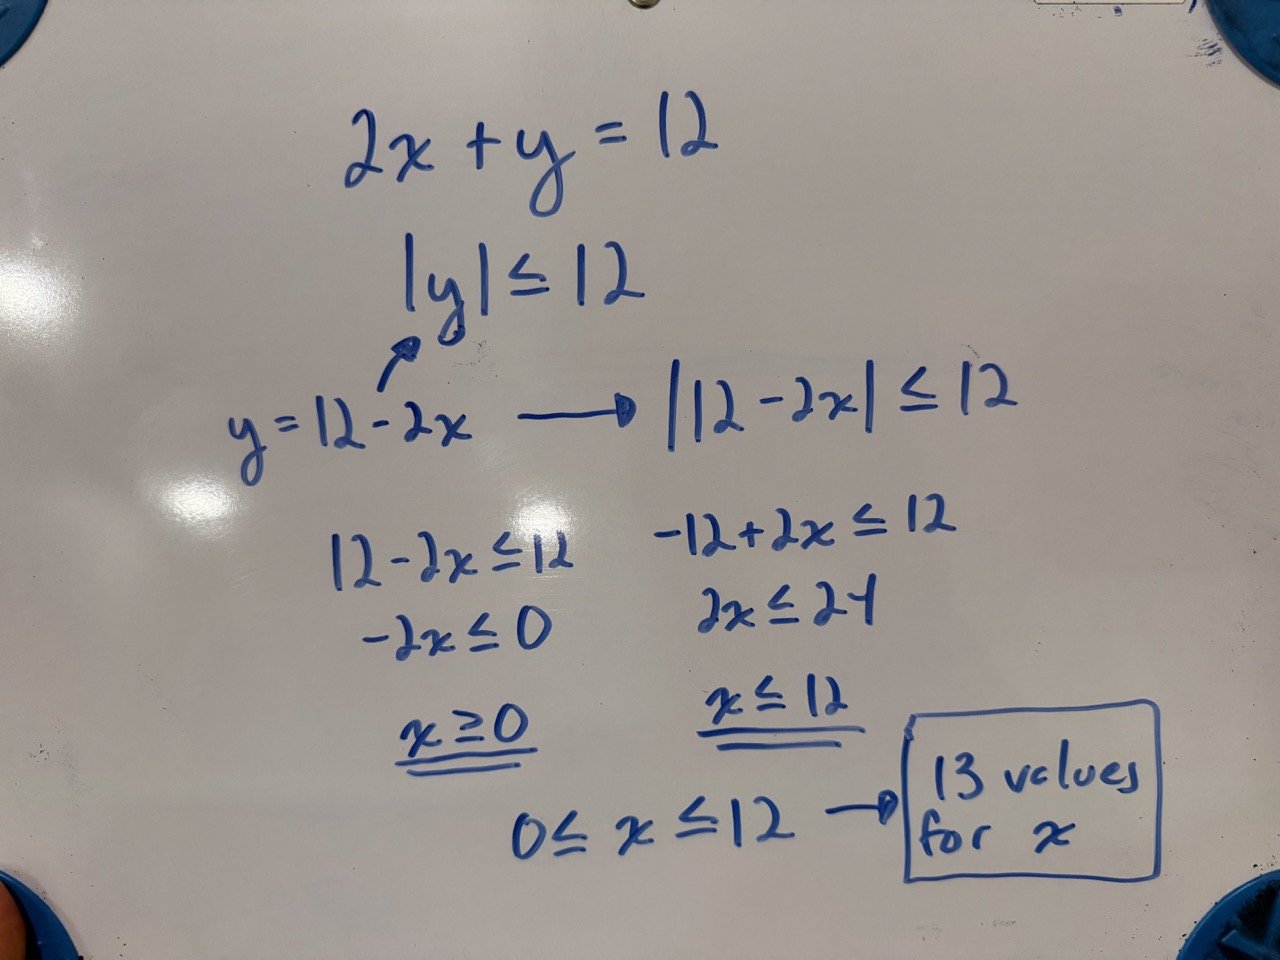 2x + y = 12
|y| ≤ 12
y = 12 - 2x → |12 - 2x| ≤ 12
12 - 2x ≤ 12
-2x ≤ 0
x ≥ 0
-12 + 2x ≤ 12
2x ≤ 24
x ≤ 12
0 ≤ x ≤ 12 → 13 values
for x